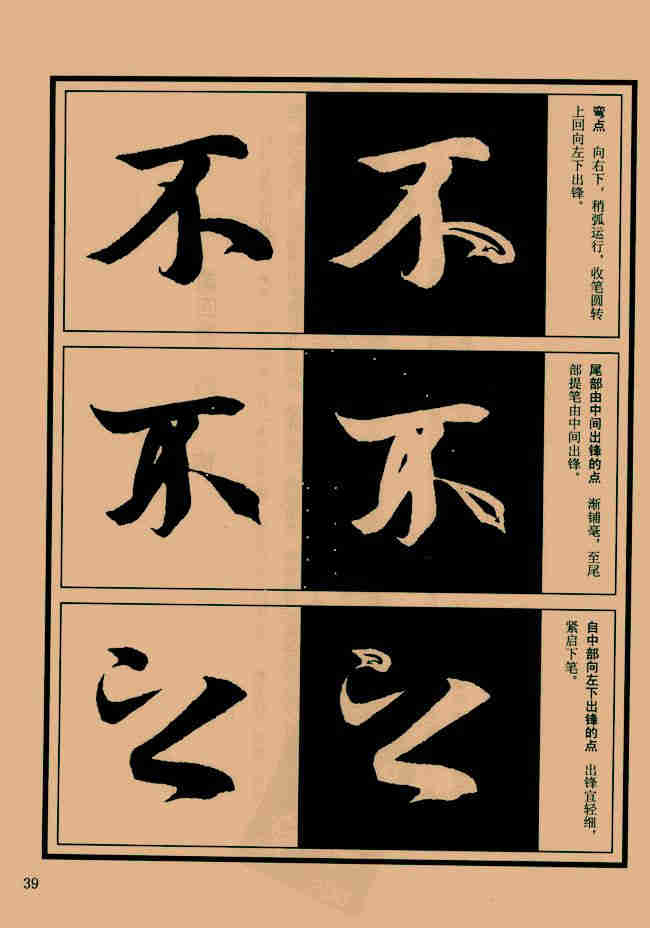 弯点 向右下，稍弧运行，收笔圆转
上回向左下出锋。
不
不
尾部由中间出锋的点 渐铺毫，至尾
部提笔由中间出锋。
不
不
自中部向左下出锋的点 出锋宜轻细，
紧启下笔。
39